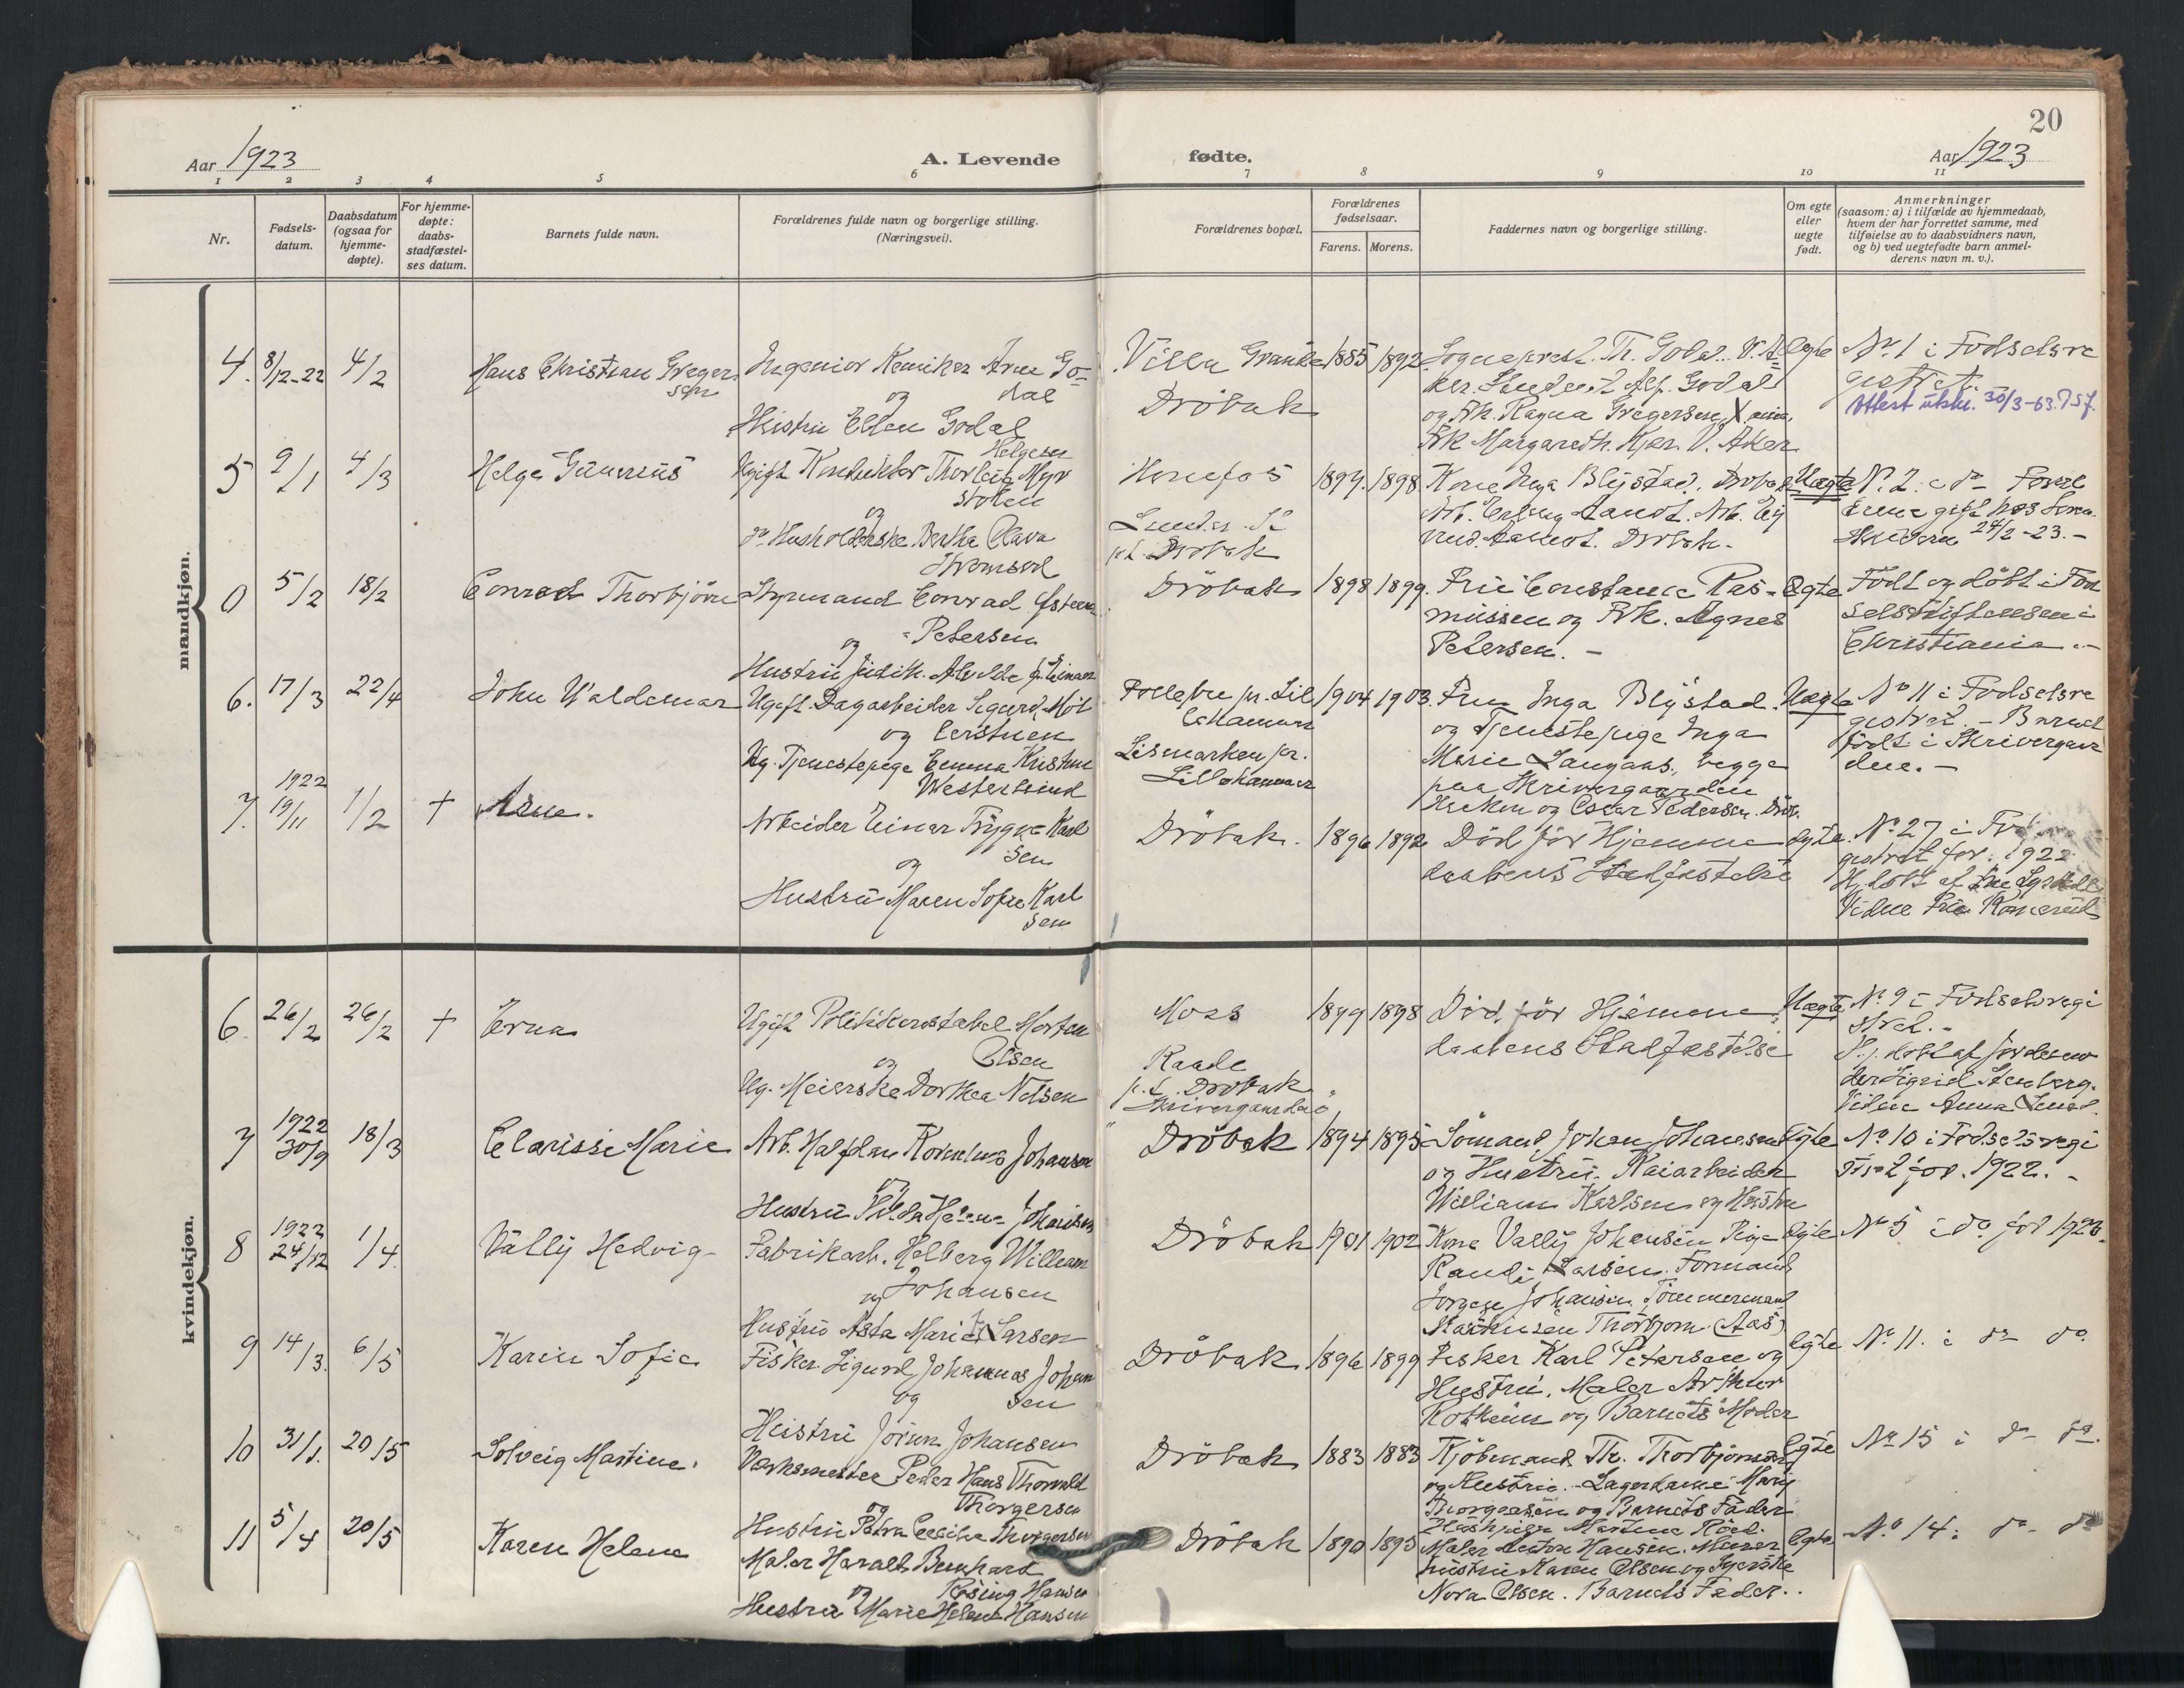 20
Aar 1923
A. Levende
fødte.
Aar 1923
1 2 3 4 5 6 7 8 9 10 11
Nr.
Fødsels-
datum.
Daabsdatum
(ogsaa for
hjemme-
døpte).
For hjemme-
døpte:
daabs-
stadfæstel-
ses datum.
Barnets fulde navn.
Forældrenes fulde navn og borgerlige stilling.
(Næringsvei).
Forældrenes bopæl.
Forældrenes
fødselsaar.
Farens. Morens.
Faddernes navn og borgerlige stilling.
Om egte
eller
uegte
født.
Anmerkninger
(saasom: a) i tilfælde av hjemmedaab,
hvem der har forrettet samme, med
tilføielse av to daabsvidners navn,
og b) ved uegtefødte barn anmel-
derens navn m. v.).
mandkjøn.
4. 8/12-22 4/2
Hans Christian Greger
sen
Ingeniør Kemiker Arne Go-
og dal
Hustru Ellen Godal
Villa
Dröbak
1885 1892
Sogneprest. Th. Godal. V. A
ker. Student Alf. Godal
og Frk. Ragna Gregersen,
Frk Margareth. Kjær. V. Aker
egte
No. 1 i Födselsre
gistret.
Attest utskr. 30/3-63.
5 9/1 4/3
Helge Gunerius
Helgesen
Ugift Konduktør Thorleif Myr
stölen
og
do Husholderske Bertha Clava
Hönefos
p.t. Dröbak
1899. 1898
Kone Inga Blÿstad, Dröbak
Dröbak.
Uegte
No. 2. i do
24/2-23.-
0 5/2 18/2
Conrad Thorbjörn
Styrmand Conrad
og Petersen
Hustru Judith.
Dröbak
1898 1899.
Fru Constance Ras-
mussen og Frk. Agnes
Petersen. -
Egte
Födt og döbt i Föd
selsstiftelsen i
Christiania.-
6. 17/3 22/4
John Waldemar
Ugift. Dagarbeider Sigurd
og
Ug. Tjenestepige Emma Kristine
Westerlund
pr. Lil
lehammer
Lismarken pr.
Lillehammer
1904 1903.
Fru Inga Blÿstad.
og Tjenestepige Inga
Marie Langaas, begge
paa Skrivergaarden
og Oscar Pedersen. Dröb.
Uegte
No 11 i Födselsre
gistret. - Barnet
födt i Skrivergaar
den. -
7. 1922
19/11 1/2 †
Arne.
Arbeider Einar Trÿgve Karl
og sen
Hustru Maren Sofie Karl
sen
Dröbak.
1896 1892
Död för Hjemme
daabens Stadfæstelse
egte.
No. 27 i
gistret for 1922
Vidne Fru
kvindekjøn.
6. 26/2 26/2 †
Erna
Ugift Politikonstabel Morten
og Olsen
Ug. Meierske Dorthea Nelsen
Moss
Raade
p.t. Dröbak
1899 1898
Död för Hjemme
daabens Stadfæstelse
Uegte
No. 9 i Födselsregi
stret.-
Hj. döbt af Jordemo
der Sigrid Stenberg.
Vidne Anna
7 1922
30/9 18/3
Clarisse Marie
Arb. Halfdan Kornelius Johansen
og
Hustru Hilda Helene Johansen
Dröbak
1894 1895
Sömand Johan Johansen
og Hustru. Kaiarbeider
William Karlsen og Hustru
Egte
No. 10 i Födselsregi
stret for. 1922. -
8 1922
24/12 1/4.
Vally Hedvig
Fabrikarb. Helberg William
og Johansen
Hustru Asta Marie Larsen
Dröbak
1901 1902
Kone Vally Johansen Pige
Randi Larsen. Formand
Jörgen Johansen. Tömmermand
Thorbjorn (Aas)
Egte
No 5 i do for 1923.
9 14/3. 6/5
Karin Sofie
Fisker Sigurd Johannes Johan
og sen
Hustru Jörun Johansen
Dröbak
1896 1899
Fisker Karl Petersen og
Hustru. Maler Arthur
og Barnets Moder
Egte
No. 11. i do do
10 31/1. 20/5
Solveig Martine.
Værksmester Peder Hans Thorvald
og Thorgersen
Hustru Petra Cecilie Thorgersen
Dröbak
1883 1883
Kjöbmand Th. Thorbjörnsen
og Hustru. Lagerdame Mary
Thorgersen og Barnets Fader
Egte
No 15 i do do.
11 5/4 20/5
Karen Helene
Maler Harald Bernhard
og Rösing Hansen
Hustru Marie Helene Hansen
Dröbak
1890 1895
Maler Anton Hansen. Murer
hustru Karen Olsen og Syerske
Nora Olsen. Barnets Fader..
Egte
No. 14 i do do